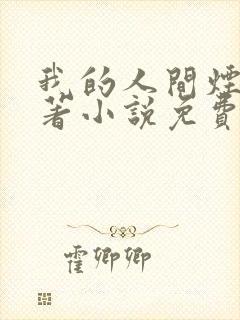 我的人間煙
著小說免費
霍卿卿